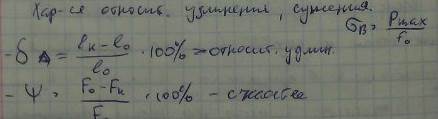 Хар-се относит. удлинения, сужения.
σв = Pmax / F₀
- δ = (lк - l₀) / l₀ · 100% = относит. удлин.
- Ψ = (F₀ - Fк) / F₀ · 100% -